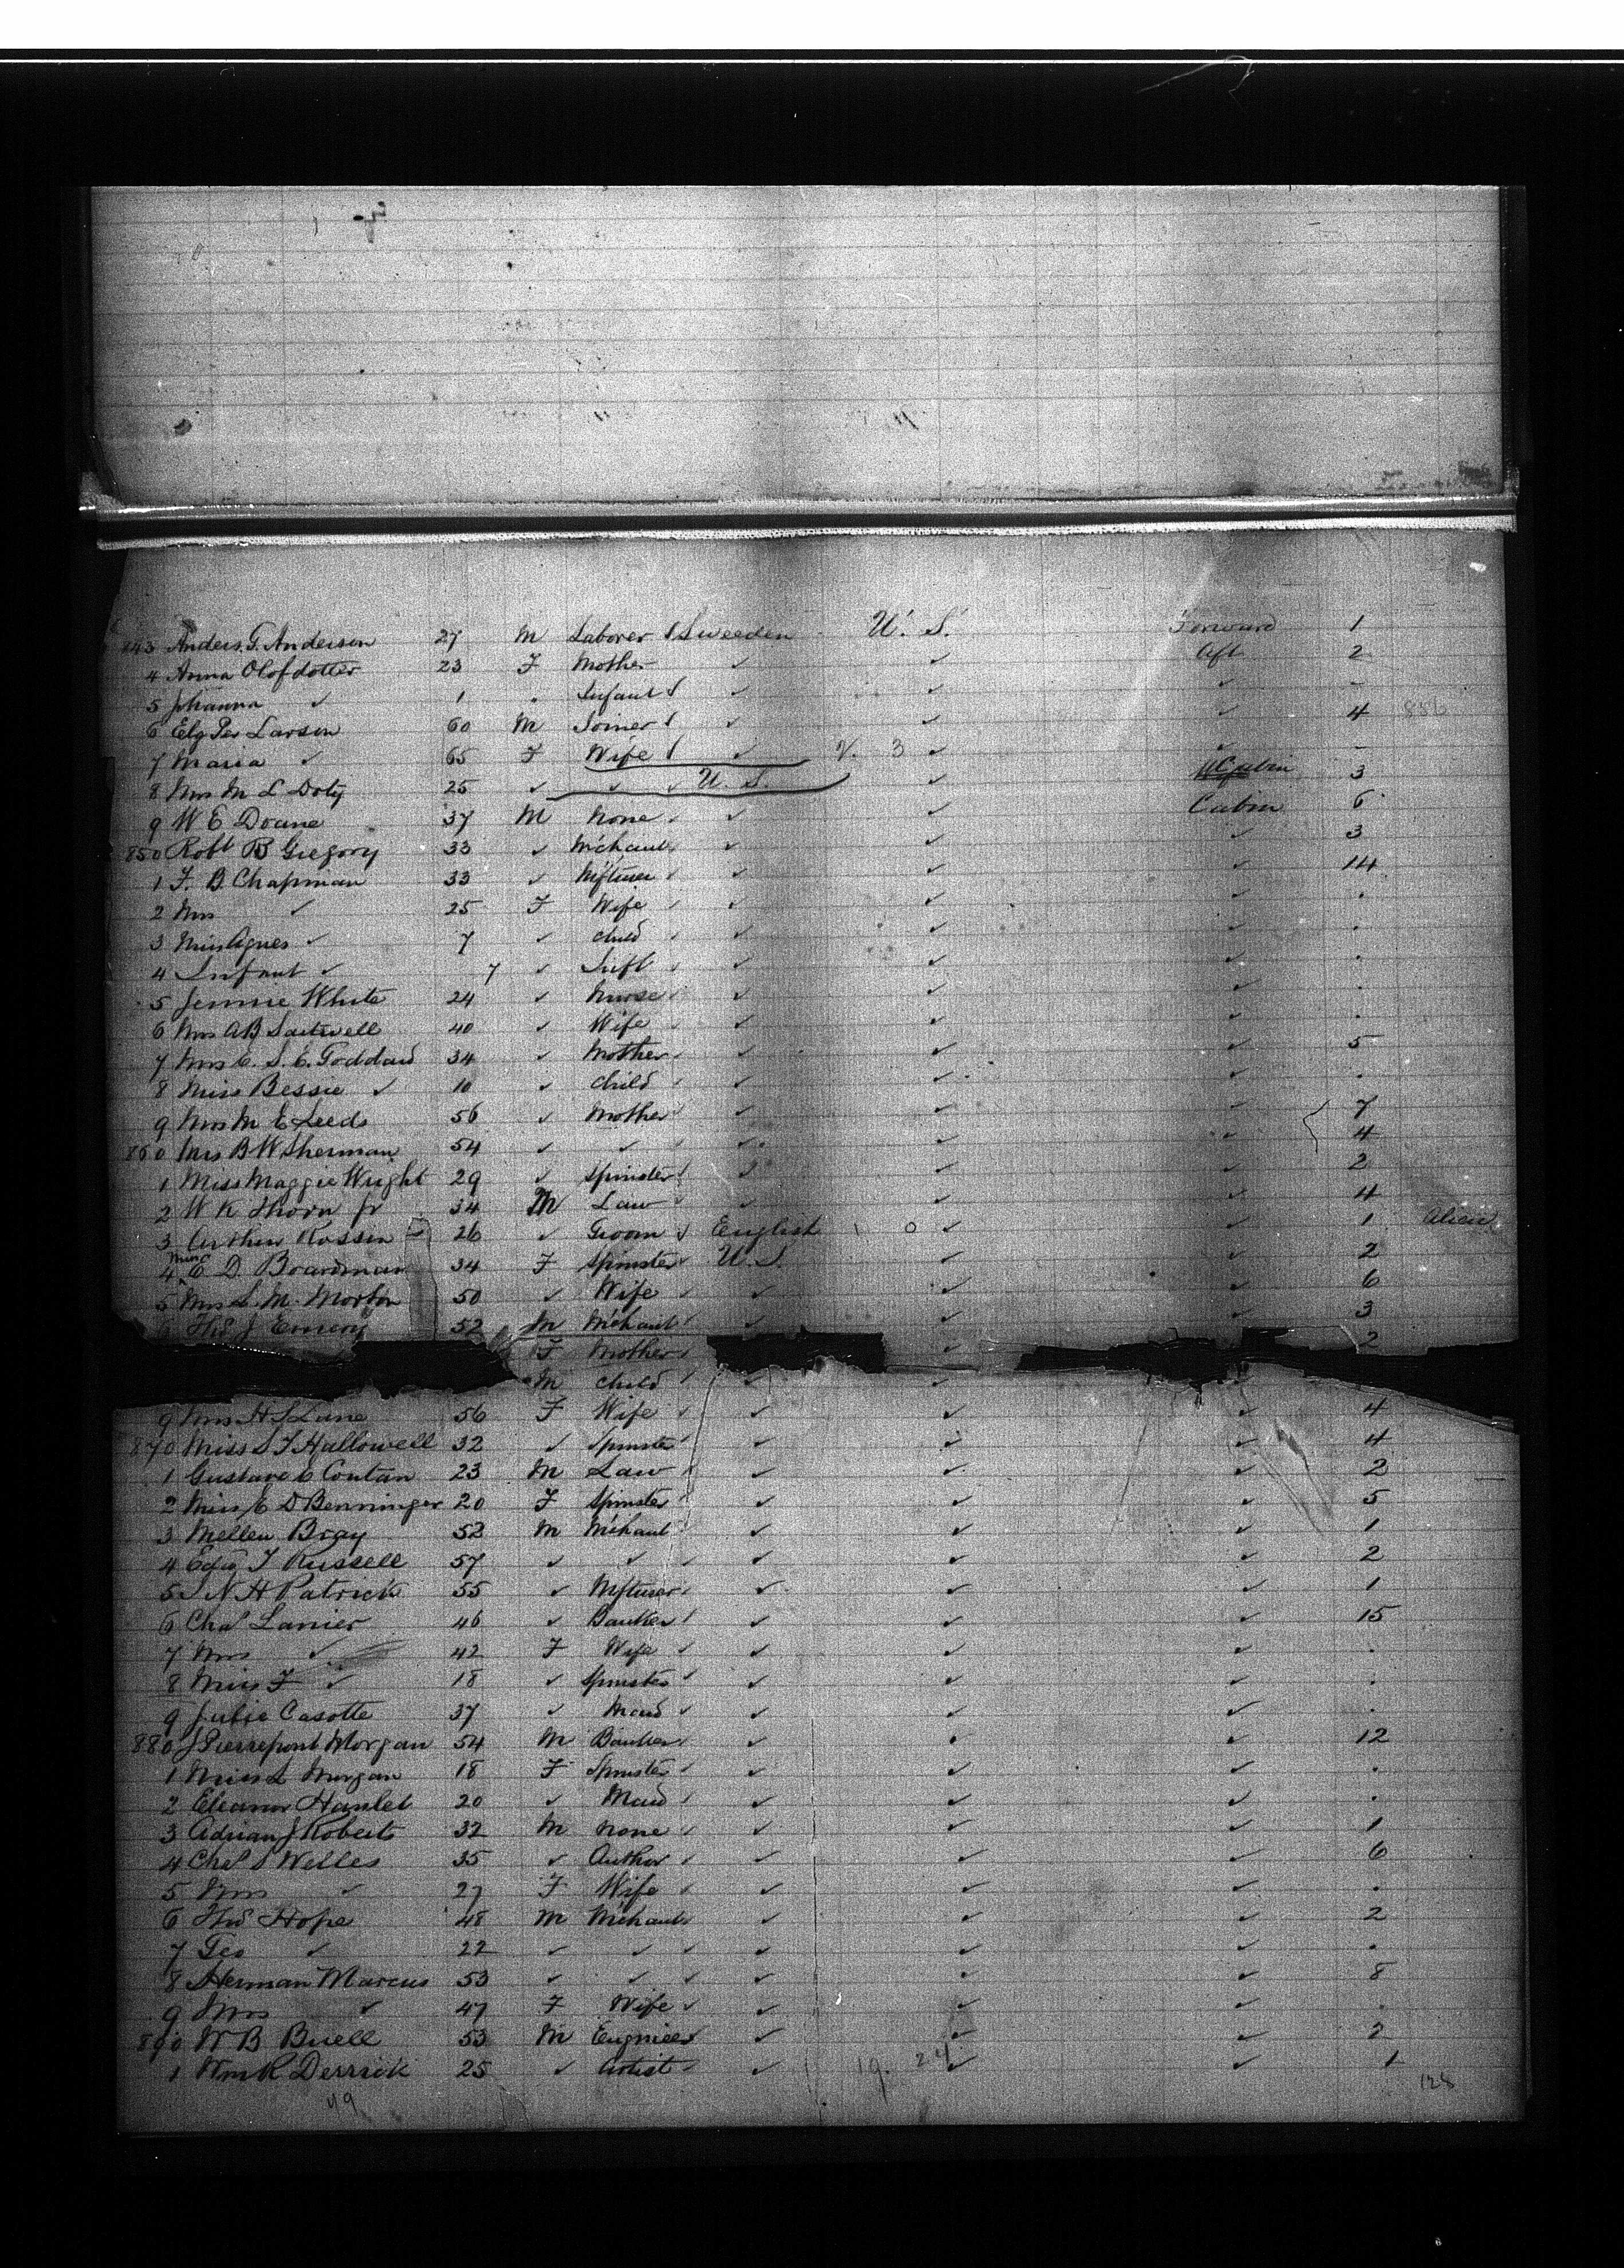 843 Anders. G. Anderson 27 M Laborer Sweeden U. S. Forward 1
4 Anna Olofdotter 23 F Mother ✓ ✓ Aft 2
5 Johanna ✓ 1 " Infant ✓ ✓ ✓ -
6 Elg Per Larson 60 M Joiner ✓ ✓ ✓ 4 886
7 Maria ✓ 65 F Wife ✓ V. 3 ✓ ✓ -
8 Mrs M L Doty 25 ✓ ✓ ✓ U. S. ✓ Cabin 3
9 W E Doane 37 M None ✓ ✓ Cabin 6
850 Robt B Gregory 33 ✓ Mchant ✓ ✓ ✓ 3
1 F. B Chapman 33 ✓ Mfturer ✓ ✓ ✓ 14
2 Mrs ✓ 25 F Wife ✓ ✓ ✓ .
3 Miss Agnes ✓ 7 ✓ Child ✓ ✓ ✓ .
4 Infant ✓ 7 ✓ Inft ✓ ✓ ✓ .
5 Jennie White 24 ✓ Nurse ✓ ✓ ✓ .
6 Mrs A B Sartwell 40 ✓ Wife ✓ ✓ ✓ .
7 Mrs C. S. C. Goddard 34 ✓ Mother ✓ ✓ ✓ 5
8 Miss Bessie ✓ 10 ✓ Child ✓ ✓ ✓ .
9 Mrs M E Leeds 56 ✓ Mother ✓ ✓ ✓ 7
860 Mrs B W Sherman 54 ✓ ✓ ✓ ✓ ✓ 4
1 Miss Maggie Wright 29 ✓ Spinster ✓ ✓ ✓ 2
2 W K Thorn Jr 34 M Law ✓ ✓ ✓ 4
3 Arthur Rossin 26 ✓ Groom English 0 ✓ ✓ 1 Alien
4 Miss E D. Boardman 34 F Spinster U. S. ✓ ✓ 2
5 Mrs L. M. Morton 50 ✓ Wife ✓ ✓ ✓ 6
6 Thos J Emery 52 M Mchant ✓ ✓ ✓ 3
F Mother ✓ 2
M Child ✓ ✓ ✓
9 Mrs H S Lane 56 F Wife ✓ ✓ ✓ 4
870 Miss S T Hallowell 32 ✓ Spinster ✓ ✓ ✓ 4
1 Gustave C Contan 23 M Law ✓ ✓ ✓ 2
2 Miss E D Benninger 20 F Spinster ✓ ✓ ✓ 5
3 Mellen Bray 52 M Mchant ✓ ✓ ✓ 1
4 Edw T Russell 57 ✓ ✓ ✓ ✓ ✓ 2
5 J N H Patrick 55 ✓ Mfturer ✓ ✓ ✓ 1
6 Chas Lanier 46 ✓ Banker ✓ ✓ ✓ 15
7 Mrs ✓ 42 F Wife ✓ ✓ ✓ .
8 Miss F ✓ 18 ✓ Spinster ✓ ✓ ✓ .
9 Julie Casotte 37 ✓ Maid ✓ ✓ ✓ .
880 J Pierrepont Morgan 54 M Banker ✓ ✓ ✓ 12
1 Miss L Morgan 18 F Spinster ✓ ✓ ✓ .
2 Eleanor Hamlet 20 ✓ Maid ✓ ✓ ✓ .
3 Adrian J Roberts 32 M None ✓ ✓ ✓ 1
4 Chas S Welles 35 ✓ Author ✓ ✓ ✓ 6
5 Mrs ✓ 27 F Wife ✓ ✓ ✓ .
6 Thos Hope 48 M Mchant ✓ ✓ ✓ 2
7 Geo ✓ 22 ✓ ✓ ✓ ✓ ✓ .
8 Herman Marcus 53 ✓ ✓ ✓ ✓ ✓ 8
9 Mrs ✓ 47 F Wife ✓ ✓ ✓ .
890 W B Buell 53 M Engnieer ✓ ✓ ✓ 2
1 Wm R Derrick 25 ✓ Artist ✓ 19. 24 ✓ ✓ 1
49 128